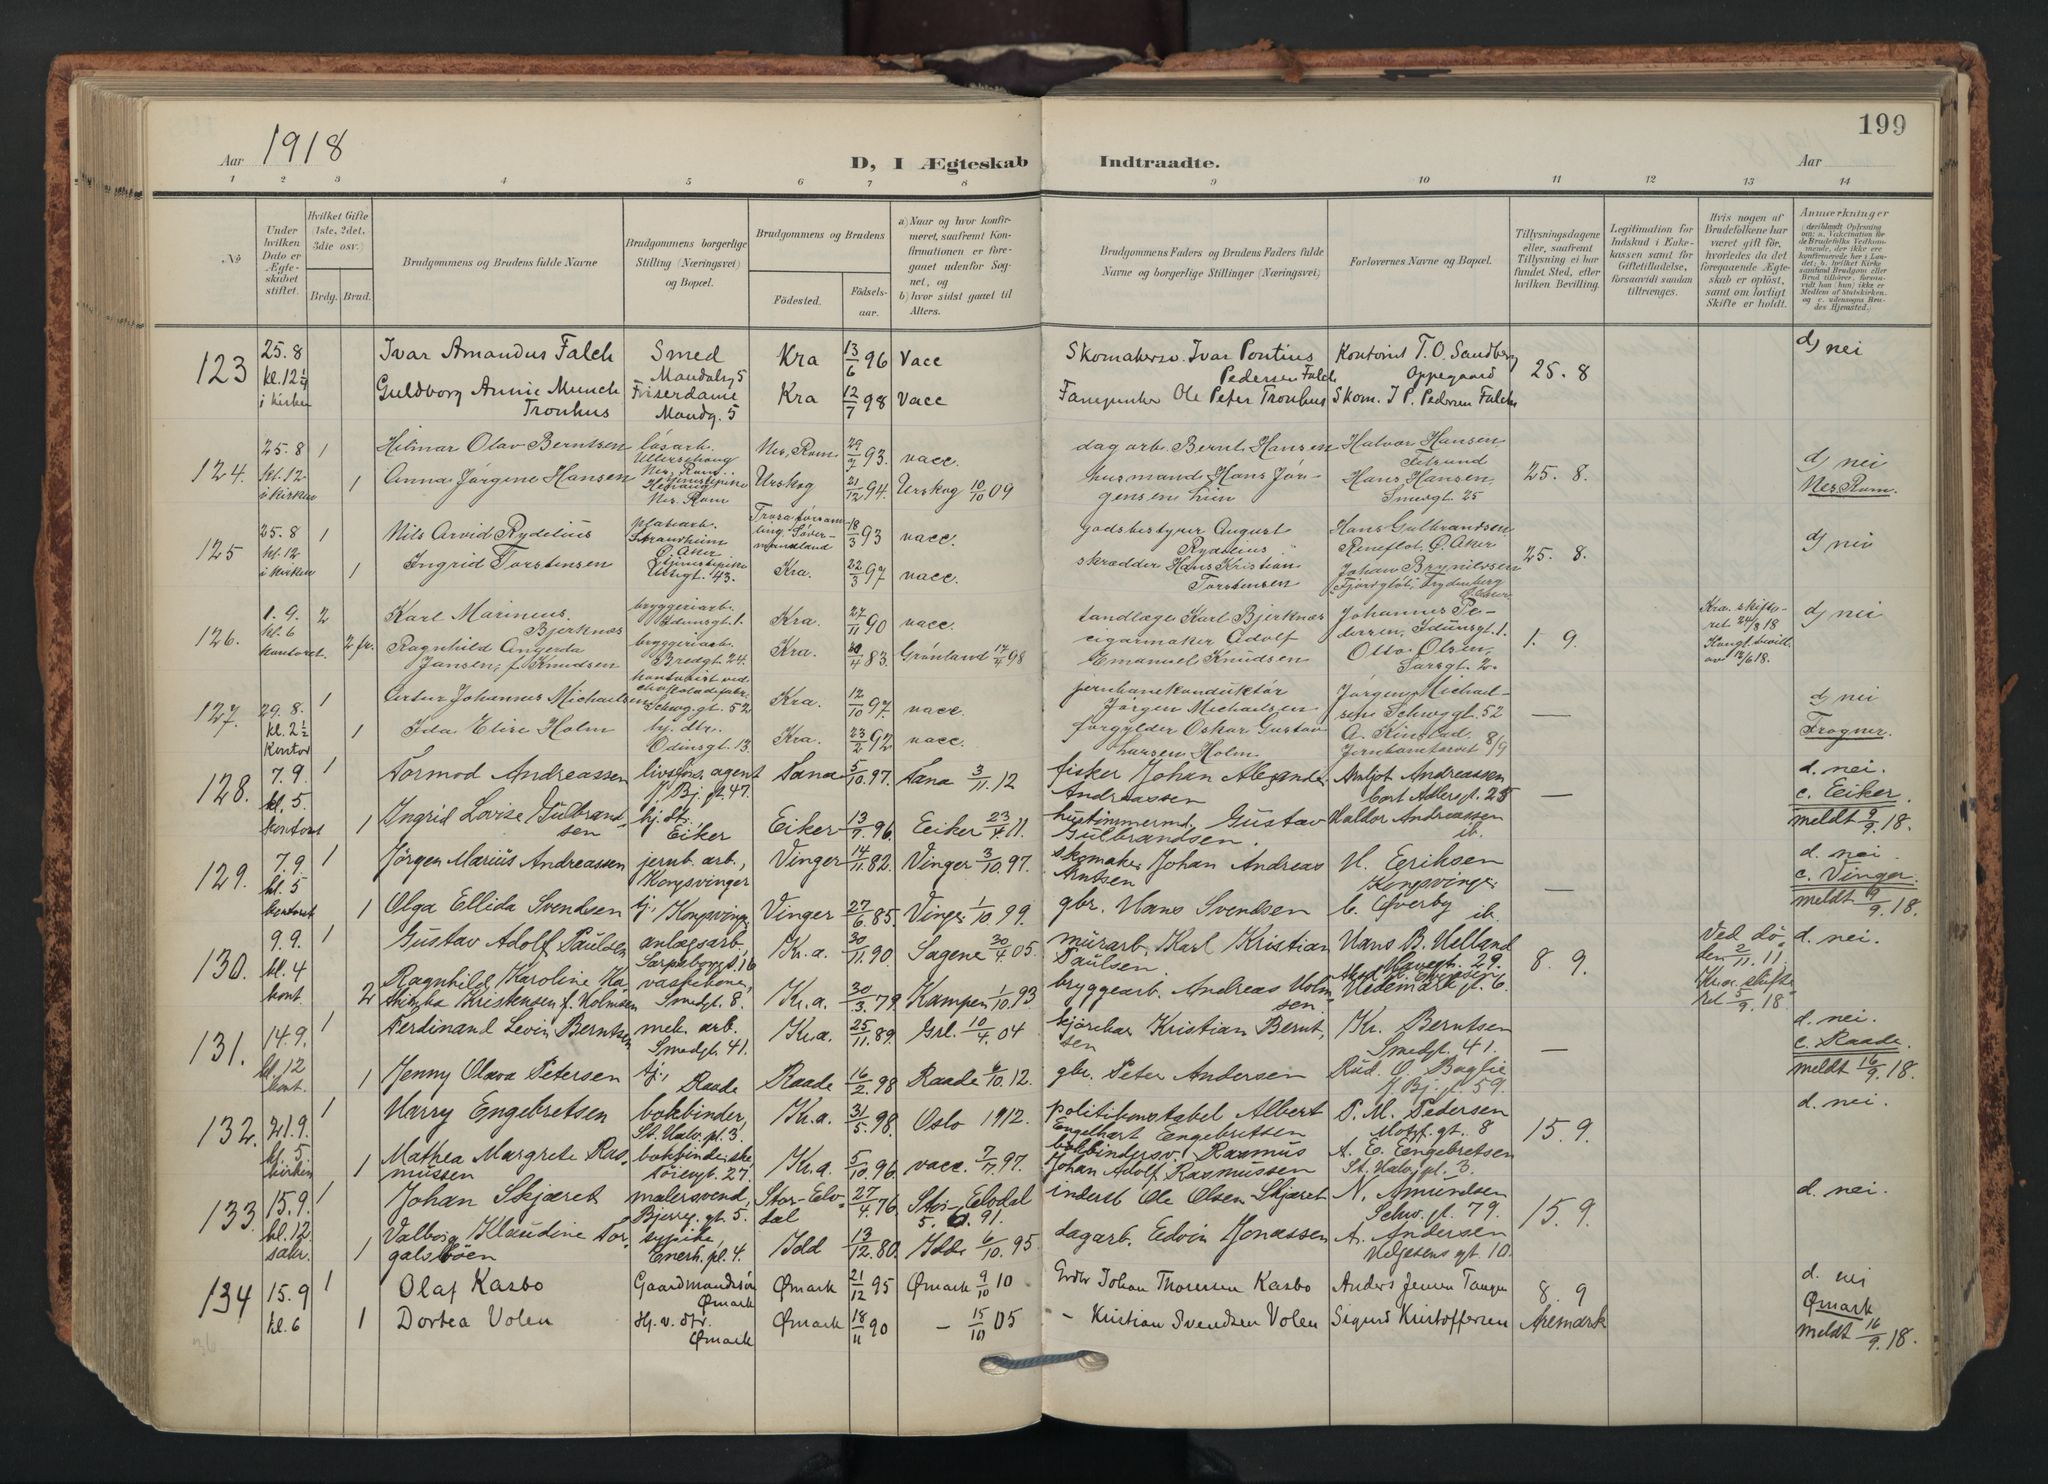 199
Aar 1918
D, I Ægteskab Indtraadte.
Aar
1 2 3 4 5 6 7 8 9 10 11 12 13 14
No
Under hvilken Dato er Ægteskabet stiftet.
Hvilket Gifte (1ste, 2det, 3die osv.)
Brdg. Brud.
Brudgommens og Brudens fulde Navne
Brudgommens borgerlige Stilling (Næringsvei) og Bopæl.
Brudgommens og Brudens
Födested. Födsels-aar.
a) Naar og hvor konfirmeret, saafremt Konfirmationen er foregaaet udenfor Sognet, og
b) hvor sidst gaaet til Alters.
Brudgommens Faders og Brudens Faders fulde Navne og borgerlige Stillinger (Næringsvei)
Forlovernes Navne og Bopæl.
Tillysningsdagene eller, saafremt Tillysning ei har fundet Sted, efter hvilken Bevilling.
Legitimation for Indskud i Enkekassen samt for Giftetilladelse, forsaavidt saadan tiltrænges.
Hvis nogen af Brudefolkene har været gift før, hvorledes da det foregaaende Ægteskab er oplöst, samt om lovligt Skifte er holdt.
Anmærkninger
123 25.8 kl. 12¼ i kirken
Ivar Amandus Falch Smed Mandalsg 5 Kra 13/6 96 Vacc Skomakersv. Ivar Pontius Pedersen Falch Kontorist T. O. Sandberg Oppegaard 25.8 d) nei
Guldborg Annie Munch Tronhus Friserdame Mandg. 5 Kra 12/7 98 Vacc Ole Peter Tronhus Skom. I P. Pedersen Falch
124. 25.8 kl. 12 i kirken
1 Hilmar Olav Berntsen løsarb. Nes, Rom. 29/7 93. vacc. dagarb. Bernt Hansen Halvor Hansen Fetsund 25.8. d) nei
1 Anna Jørgine Hansen Nes, Rom Urskog 21/12 94. Urskog 10/10 09 husmand Hans Jørgensen Hans Hansen, Smedgt 25 Nes, Rom.
125 25.8 kl. 12 i kirken
1 Nils Arvid Rydelius Ø. Aker 18/3 93 vacc. godsbestyrer August Rydelius Hans Gulbrandsen Ø. Aker 25.8. d) nei
1 Ingrid Torstensen 43. Kra. 22/3 97 vacc. skrædder Hans Kristian Torstensen Johan Brynildsen
126. 1.9. kl. 6 kontoret
2 Karl Marinius Bjerknæs bryggeriarb. Idunsgt. 1. Kra. 27/11 90 vacc. tandlæge Karl Bjerknæs Johannes Pedersen, Idunsgt. 1. 1.9. Kra. skifteret 24/8 18 d) nei
2 fr. Ragnhild Angerda Jansen, f. Knudsen bryggeriarb. Bredgt. 24. Kra. 20/4 83. Grønland 17/4 98 cigarmaker Adolf Emanuel Knudsen Otto Olsen, Sarsgt. 2. Kongl. bevill. av 12/6 18.
127. 29.8. kl. 2½ Kontor
1 Artur Johannes Michaelsen kontorist ved chokoladefabr. Schwg. gt. 52 Kra. 12/10 97. vacc. jernbanekonduktør Jørgen Michaelsen Jørgen Michaelsen Schwg gt. 52 — d) nei
1 Ida Elise Holm hj. dtr. Odinsgt. 13. Kra. 23/2 92 vacc. forgylder Oskar Gustav Larsen Holm Jernbanetorvet 8/9 Frogner.
128. 7.9. kl. 5. kontoret
1 Tormod Andreassen livsfors. agent Tana 5/10 97. Tana 3/11. 12 fisker Johan Alexander Andreassen Arnljot Andreassen Cort Adlersgt. 25 — d. nei.
1 Ingrid Lovise Gulbrandsen hj. dt. Eiker Eiker 13/7 96 Eeiker 23/4. 11. hustømmermd. Gustav Gulbrandsen. Haldor Andreassen ib. c. Eeiker. meldt 9/9. 18.
129. 7.9. kl. 5 kontoret
1 Jørgen Marius Andreassen jernb. arb., Kongsvinger Vinger 14/11 82. Vinger 3/10. 97. skomaker Johan Andreas Arntsen H. Eeriksen Kongsvinger — d. nei.
1 Olga Ellida Svendsen tj., Kongsvinger Vinger 27/6 85 Vinger 1/10 99. gbr. Hans Svendsen C. Øverby ib. c. Vinger. meldt 9/9. 18.
130. 9.9. kl. 4 kont.
1 Gustav Adolf Paulsen anlægsarb., Sarpsborggt 16 Kr.a. 30/11 90 Sagene 30/4 05. murarb., Karl Kristian Paulsen Hans B. Helland Havegt. 29. 8.9. Ved død den 2/11. 11. d. nei.
2 Ragnhild Karoline Kathinka Kristensen f. Holmsen vaskekone, Smedgt 8. Kr.a. 30/3 79. Kampen 1/10 93 bryggearb. Andreas Holmsen Hedemarksgt. 6. Kr.a. skifteret 5/9. 18.
131. 14.9. kl. 12 kont.
1 Ferdinand Levin Berntsen mek. arb. Smedgt. 41. Kr.a. 25/11 89. Grl. 10/4. 04 kjørekar Kristian Berntsen Kr. Berntsen Smedgt. 41. — d. nei.
1 Jenny Olava Petersen tj., Raade Raade 16/2 98 Raade 6/10. 12. gbr. Peter Andersen Rud. O. Baglie c. Raade. meldt 16/9. 18.
132. 21.9. kl. 5 kirken
1 Harry Engebretsen bokbinder, St. Halv. pl. 3. Kr.a. 31/5 98. Oslo 1912. politikonstabel Albert Engelhart Engebretsen P. M. Pedersen Motzf. gt. 8 15.9. d. nei.
1 Mathea Margrete Rasmussen bokbinderske tøiengt. 27. Kr.a. 5/10 96 vacc. 2/7. 97. bokbindersv. Rasmus Johan Adolf Rasmussen A. E. Engebretsen St. Halv. pl. 3.
133. 15.9. kl. 12 sakr.
1 Johan Skjæret malersvend, Bjerreg. gt. 5. Stor-Elvdal 27/4 76 Stor-Elvdal 5.6. 91. inderst Ole Olsen Skjæret N. Amundsen Schw. gt. 79. 15.9. d. nei.
1 Valborg Klaudine Torgalsbøen sypike, Enerh. pl. 4. Idd 13/12. 80. Idd 6/10. 95. dagarb. Edvin Jonassen A. Andersen gt. 10.
134 15.9 kl. 6
1 Olaf Kasbo Gaardmandssøn Ømark Ømark 21/12 95 Ømark 9/10 10 Johan Thoresen Kasbo Anders Jensen Tangen 8.9 d. nei
1 Dortea Volen Hj. v. dtr. Ømark Ømark 18/11 90 – 15/10 05 – Kristian Svendsen Volen Sigurd Kristoffersen Aremark Ømark meldt 16/9. 18.
36